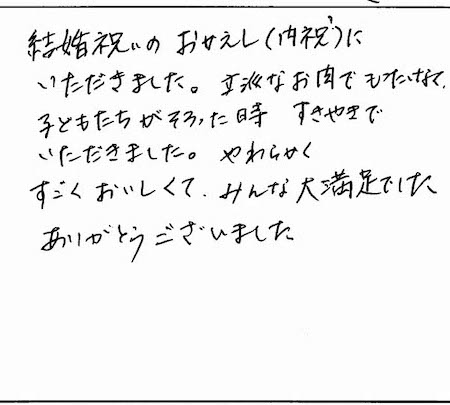 結婚祝いの おかえし(内祝)に
いただきました。立派なお肉でもったいなくて、
子どもたちがそろった時 すきやきで
いただきました。 やわらかく
すごくおいしくて、みんな大満足でした
ありがとうございました